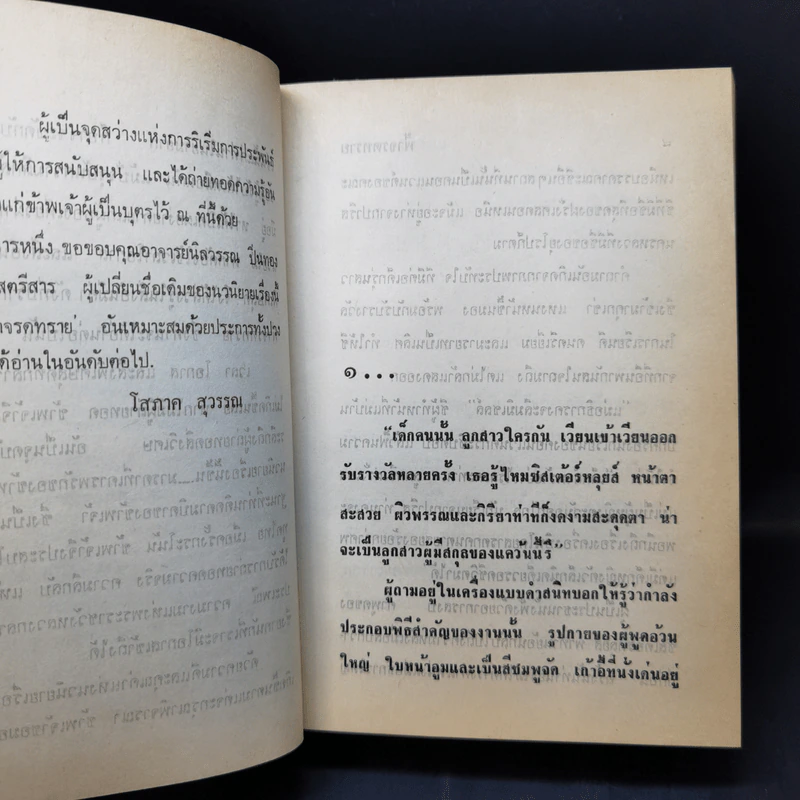 ผู้เป็นจุดสว่างแห่งการริเริ่มการประพันธ์
ผู้ให้การสนับสนุน และได้ถ่ายทอดความรู้อัน
แก่ข้าพเจ้าผู้เป็นบุตรไว้ ณ ที่นี้ด้วย
การหนึ่ง ขอขอบคุณอาจารย์นิลวรรณ ปิ่นทอง
สตรีสาร ผู้เปลี่ยนชื่อเดิมของนวนิยายเรื่องนี้
จรดทราย' อันเหมาะสมด้วยประการทั้งปวง
ได้อ่านในอันดับต่อไป.
โสภาค สุวรรณ
๑...
"เด็กคนนั้น ลูกสาวใครกัน เวียนเข้าเวียนออก
รับรางวัลหลายครั้ง เธอรู้ไหมซิสเต้อร์หลุยส์ หน้าตา
สะสวย ผิวพรรณและกิริยาท่าทีก็งดงามสะดุดตา น่า
จะเป็นลูกสาวผู้มีสกุลของแคว้นนี้รึ"
ผู้ถามอยู่ในเครื่องแบบดำสนิทบอกให้รู้ว่ากำลัง
ประกอบพิธีสำคัญของงานนั้น รูปกายของผู้พูดอ้วน
ใหญ่ ใบหน้าอูมและเป็นสีชมพูจัด เก้าอี้ที่นั่งเด่นอยู่